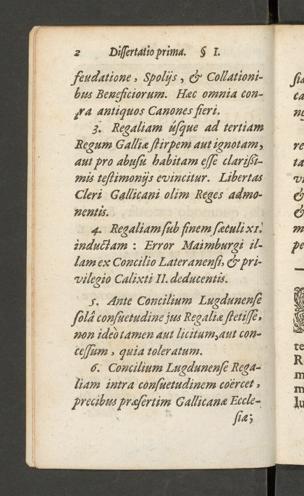 2 Dissertatio prima. § I.
feudatione, Spolijs, & Collationi-
bus Beneficiorum. Hæc omnia con-
tra antiquos Canones fieri.
3. Regaliam usque ad tertiam
Regum Galliæ stirpem aut ignotam,
aut pro abusu habitam esse clarissi-
mis testimonijs evincitur. Libertas
Cleri Gallicani olim Reges admo-
nentis.
4. Regaliam sub finem sæculi XI.
inductam : Error Maimburgi il-
lam ex Concilio Lateranensi, & pri-
vilegio Calixti II. deducentis.
5. Ante Concilium Lugdunense
solâ consuetudine jus Regaliæ stetisse,
non ideò tamen aut licitum, aut con-
cessum, quia toleratum.
6. Concilium Lugdunense Rega-
liam intra consuetudinem coërcet,
precibus præsertim Gallicanæ Eccle-
siæ;